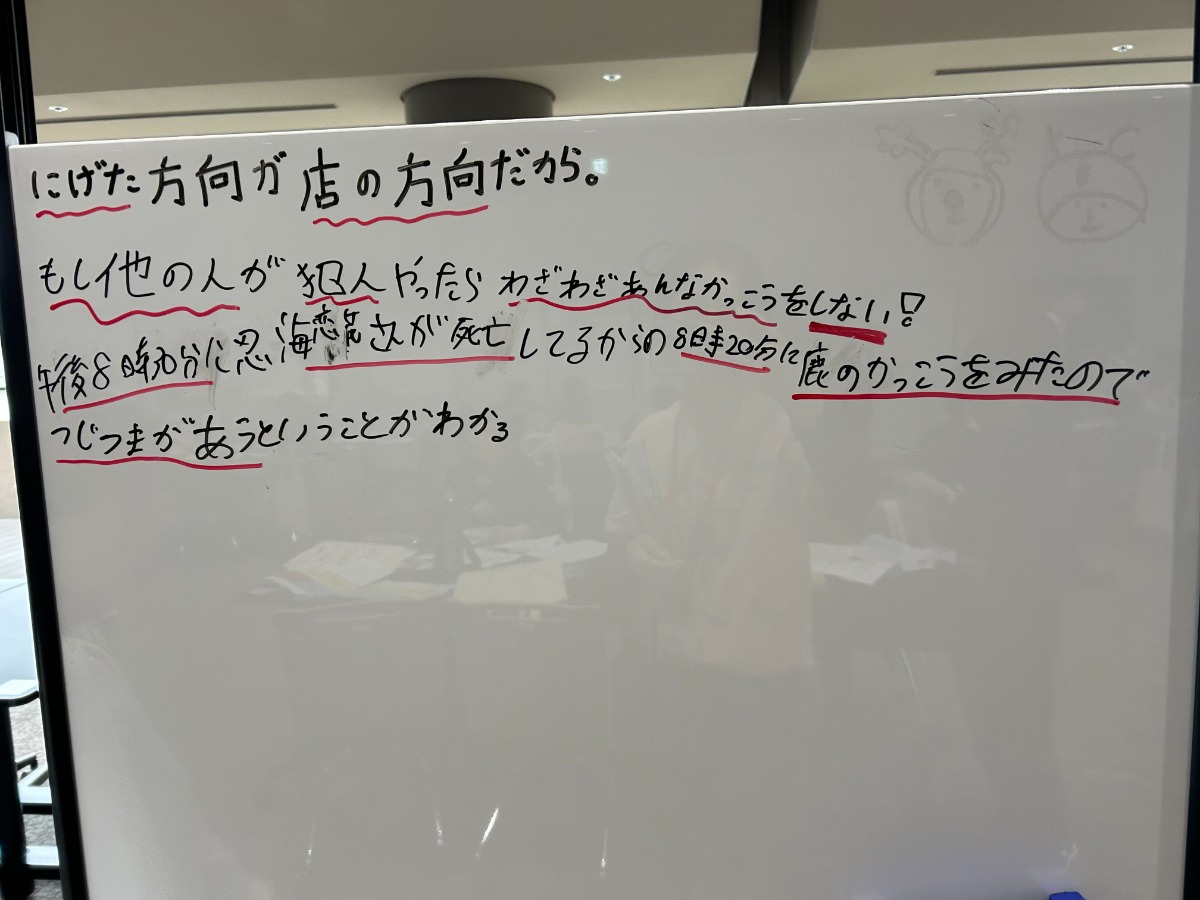 にげた方向が店の方向だから。
もし他の人が犯人やったらわざわざあんなかっこうをしない!
午後8時 分に忍海恋 さんが死亡してるからの8時20分に鹿のかっこうをみたので
つじつまがあうということがわかる